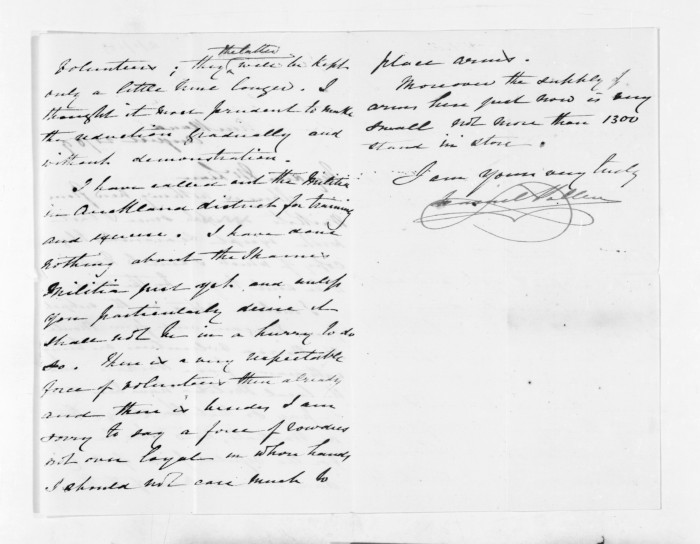 the latter
Volunteers; they will be kept
only a little time longer. I
thought it most prudent to make
the reduction gradually and
without demonstration.
I have called out the Militia
in Auckland district for training
and exercise. I have done
nothing about the Thames
Militia just yet and unless
you particularly desire it
shall not be in a hurry to do
so. There is a very respectable
force of Volunteers there already
and there is besides I am
sorry to say a force of rowdies
not over loyal in whose hands
I should not care much to
place arms.
Moreover the supply of
arms here just now is very
small not more than 1300
stand in store.
I am Yours very truly